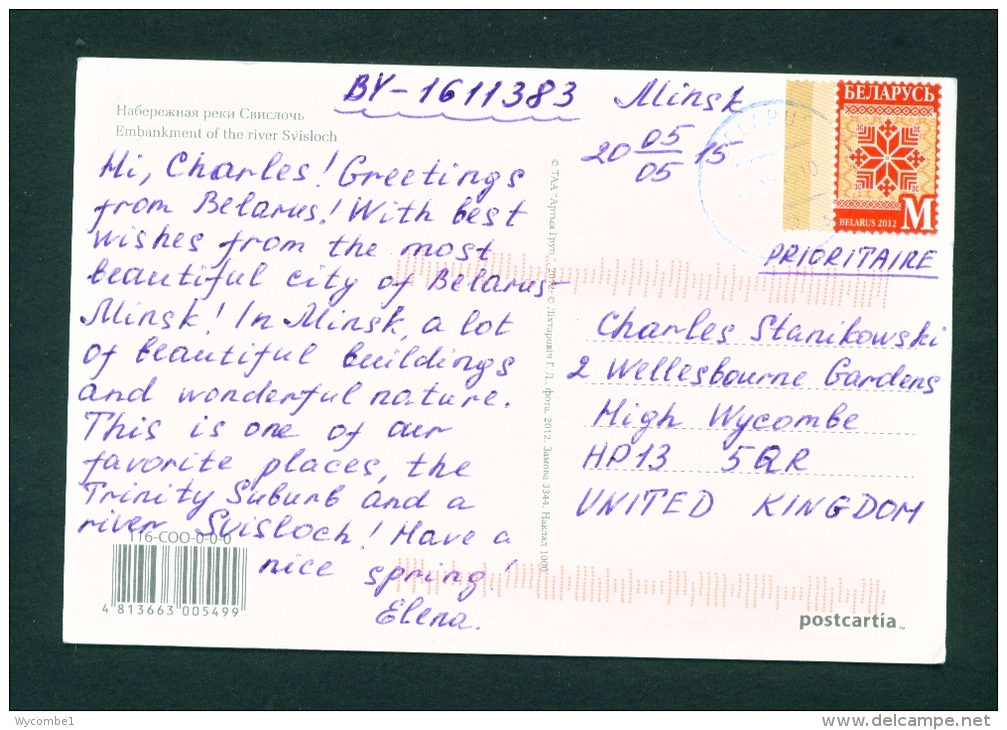 BY-1611383
Minsk
20 05/05 15
Набережная реки Свислочь
Embankment of the river Svisloch
Hi, Charles! Greetings
from Belarus! With best
wishes from the most
beautiful city of Belarus-
Minsk! In Minsk, a lot
of beautiful buildings
and wonderful nature.
This is one of our
favorite places, the
Trinity Suburb and a
river Svisloch! Have a
nice spring!
Elena.
116-COO-0-0-0
4 813663 005499
2012. Замова 3344. Наклад 1000
БЕЛАРУСЬ
BELARUS 2012
M
PRIORITAIRE
Charles Stanikowski
2 Wellesbourne Gardens
High Wycombe
HP13 5QR
UNITED KINGDOM
postcartia™
Wycombe1
http://www.delcampe.net